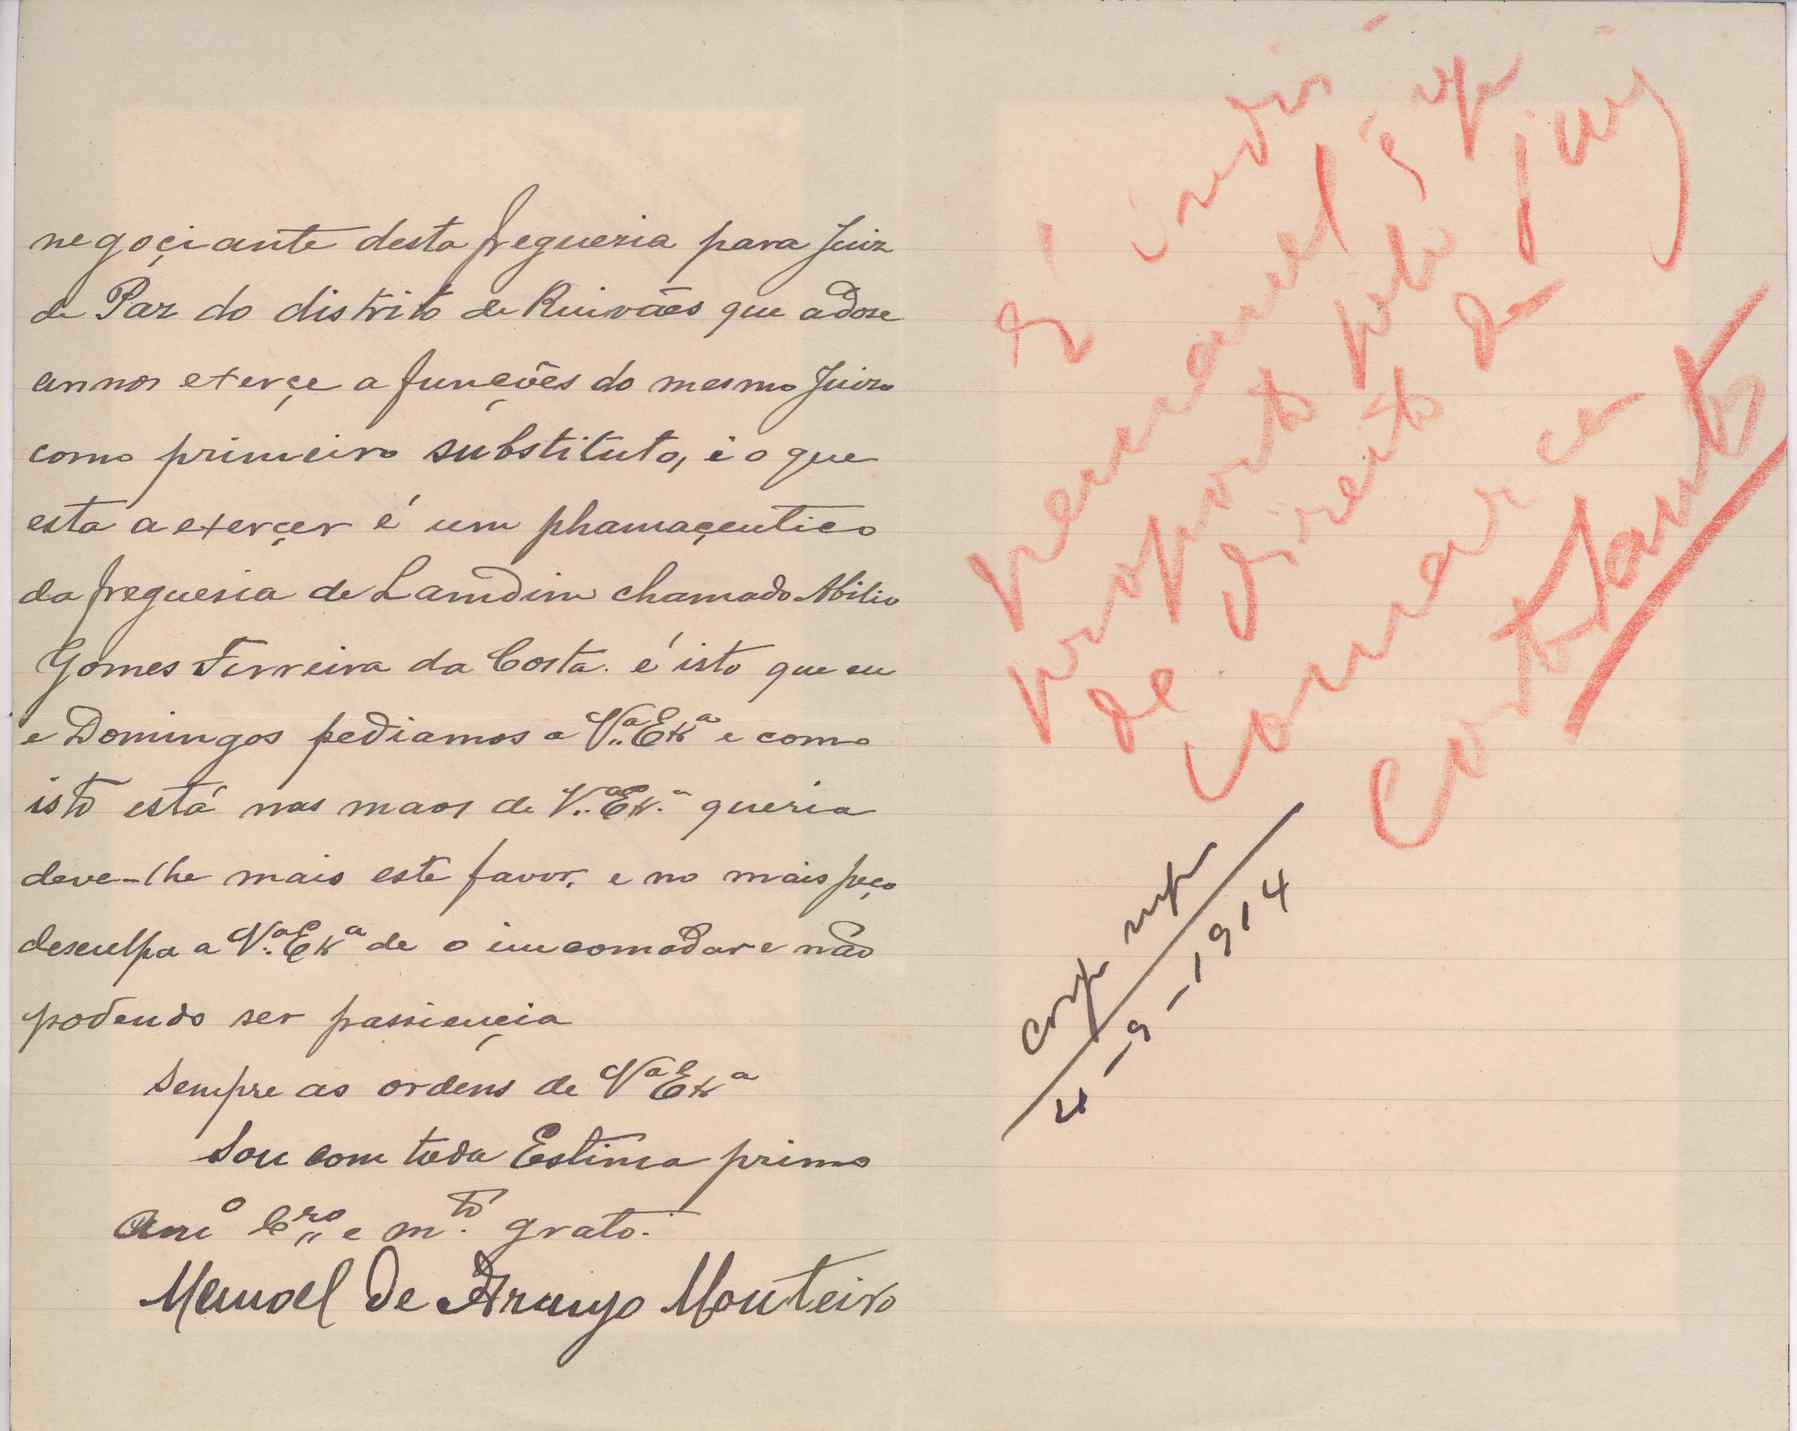 negoçiante desta freguezia para Juiz
de Paz do distrito de Ruivães que adoze
annos exerçe a funções do mesmo Juizo
como primeiro substituto, e o que
esta a exerçer é um phamaçeutico
da freguezia de Lamdim chamado Abilio
Gomes Ferreira da Costa. é isto que eu
e Domingos pediamos a V.ª Exª e como
isto está nas maos de V.ª Ex.ª queria
deve-lhe mais este favor, e no mais peço
desculpa a V.ª Exª de o incomodar e não
podendo ser passiençia
Sempre as ordens de Vª Exª
Sou com toda Estima primo
Amº Cro e m.to grato.
Manoel de Araujo Monteiro
É indis
pensavel é
proposto pelo juiz
de direito da
comarca
4-9-1914